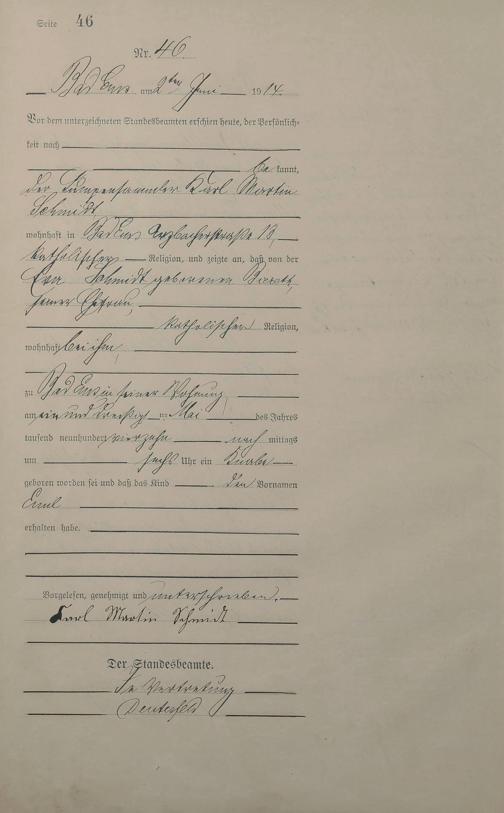 Seite 46
Nr. 46
Bad Ems am 2ten Juni 1914.
Vor dem unterzeichneten Standesbeamten erschien heute, der Persönlich-
keit nach
be kannt,
der Lumpensammler Karl Martin
Schmidt
wohnhaft in Bad Ems Arzbacherstraße 13,
katholischer Religion, und zeigte an, daß von der
Eva Schmidt geborenen
seiner Ehefrau,
katholischer Religion,
wohnhaft bei ihm,
zu Bad Ems in seiner Wohnung,
am ein und dreißigsten Mai des Jahres
tausend neunhundert vierzehn nach mittags
um sechs Uhr ein Knabe
geboren worden sei und daß das Kind den Vornamen
Emil
erhalten habe.
Vorgelesen, genehmigt und unterschrieben.
Karl Martin Schmidt
Der Standesbeamte.
In Vertretung